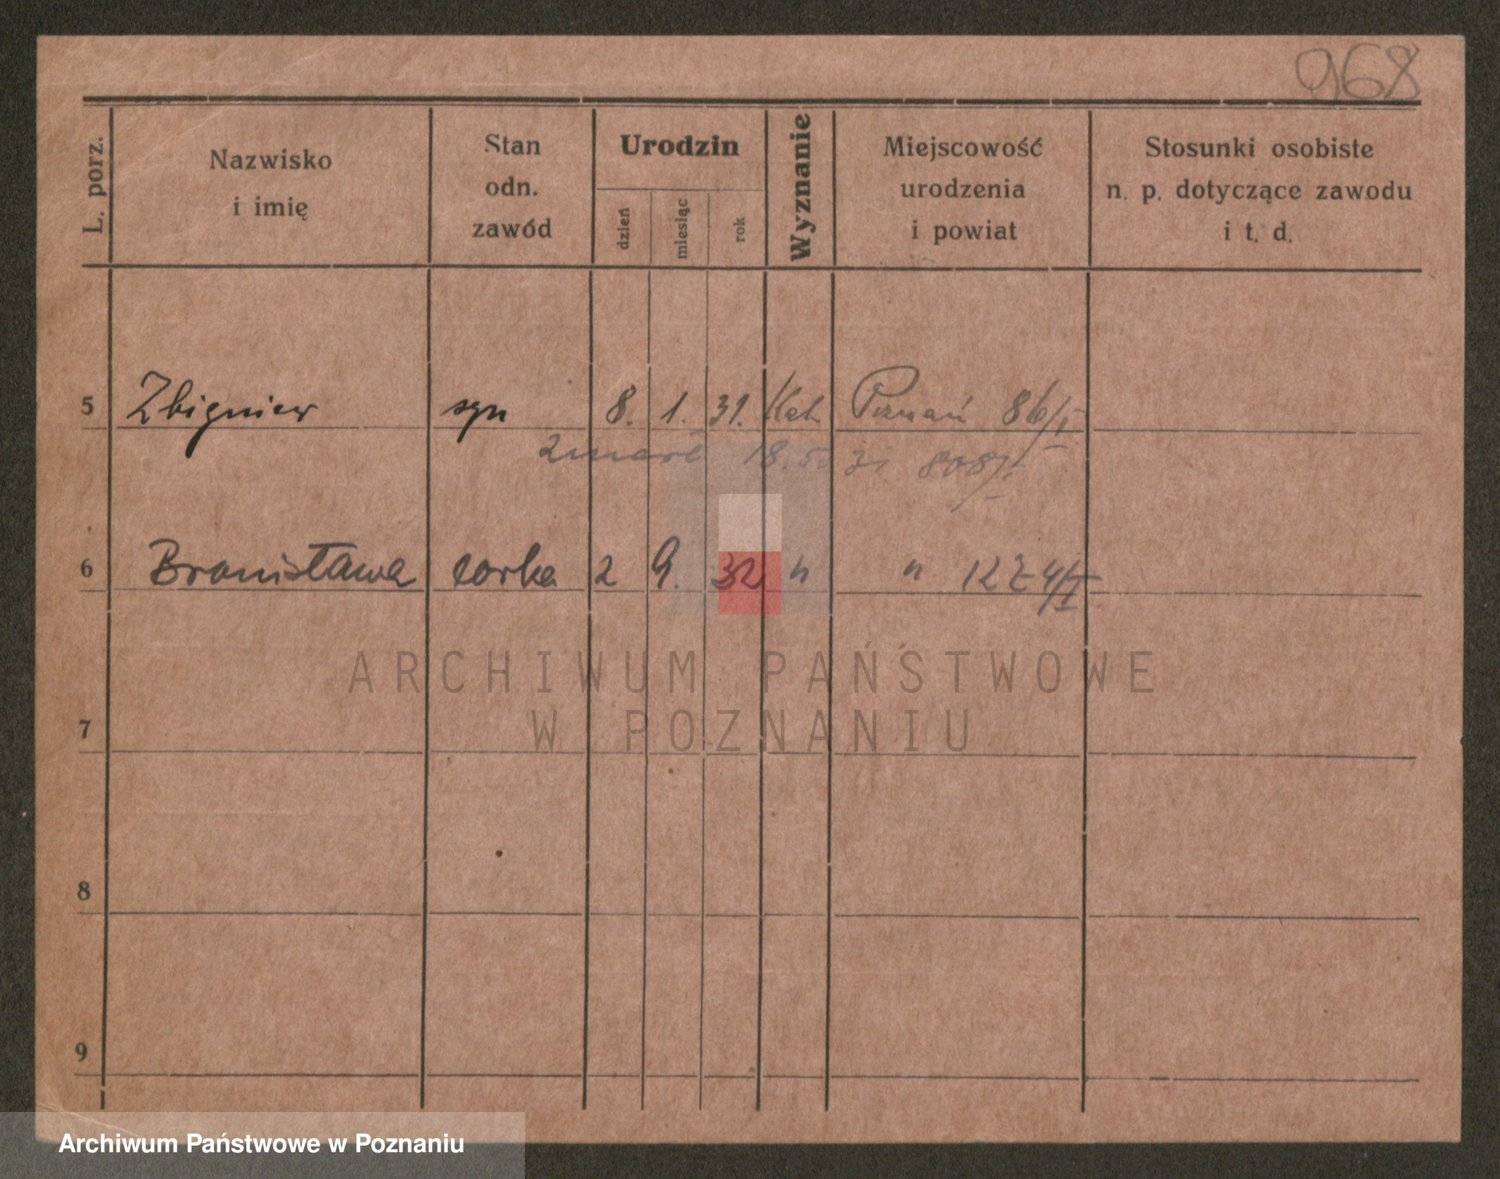 968
L. porz.
Nazwisko
i imię
Stan
odn.
zawód
Urodzin
dzień
miesiąc
rok
Wyznanie
Miejscowość
urodzenia
i powiat
Stosunki osobiste
n. p. dotyczące zawodu
i t. d.
5 Zbigniew syn 8. 1. 31. Kat. Poznań 86/I
zmarł 18.5. 31 808/I
6 Bronisława córka 2 9. 32 " "
7
8
9
ARCHIWUM PAŃSTWOWE
W POZNANIU
Archiwum Państwowe w Poznaniu